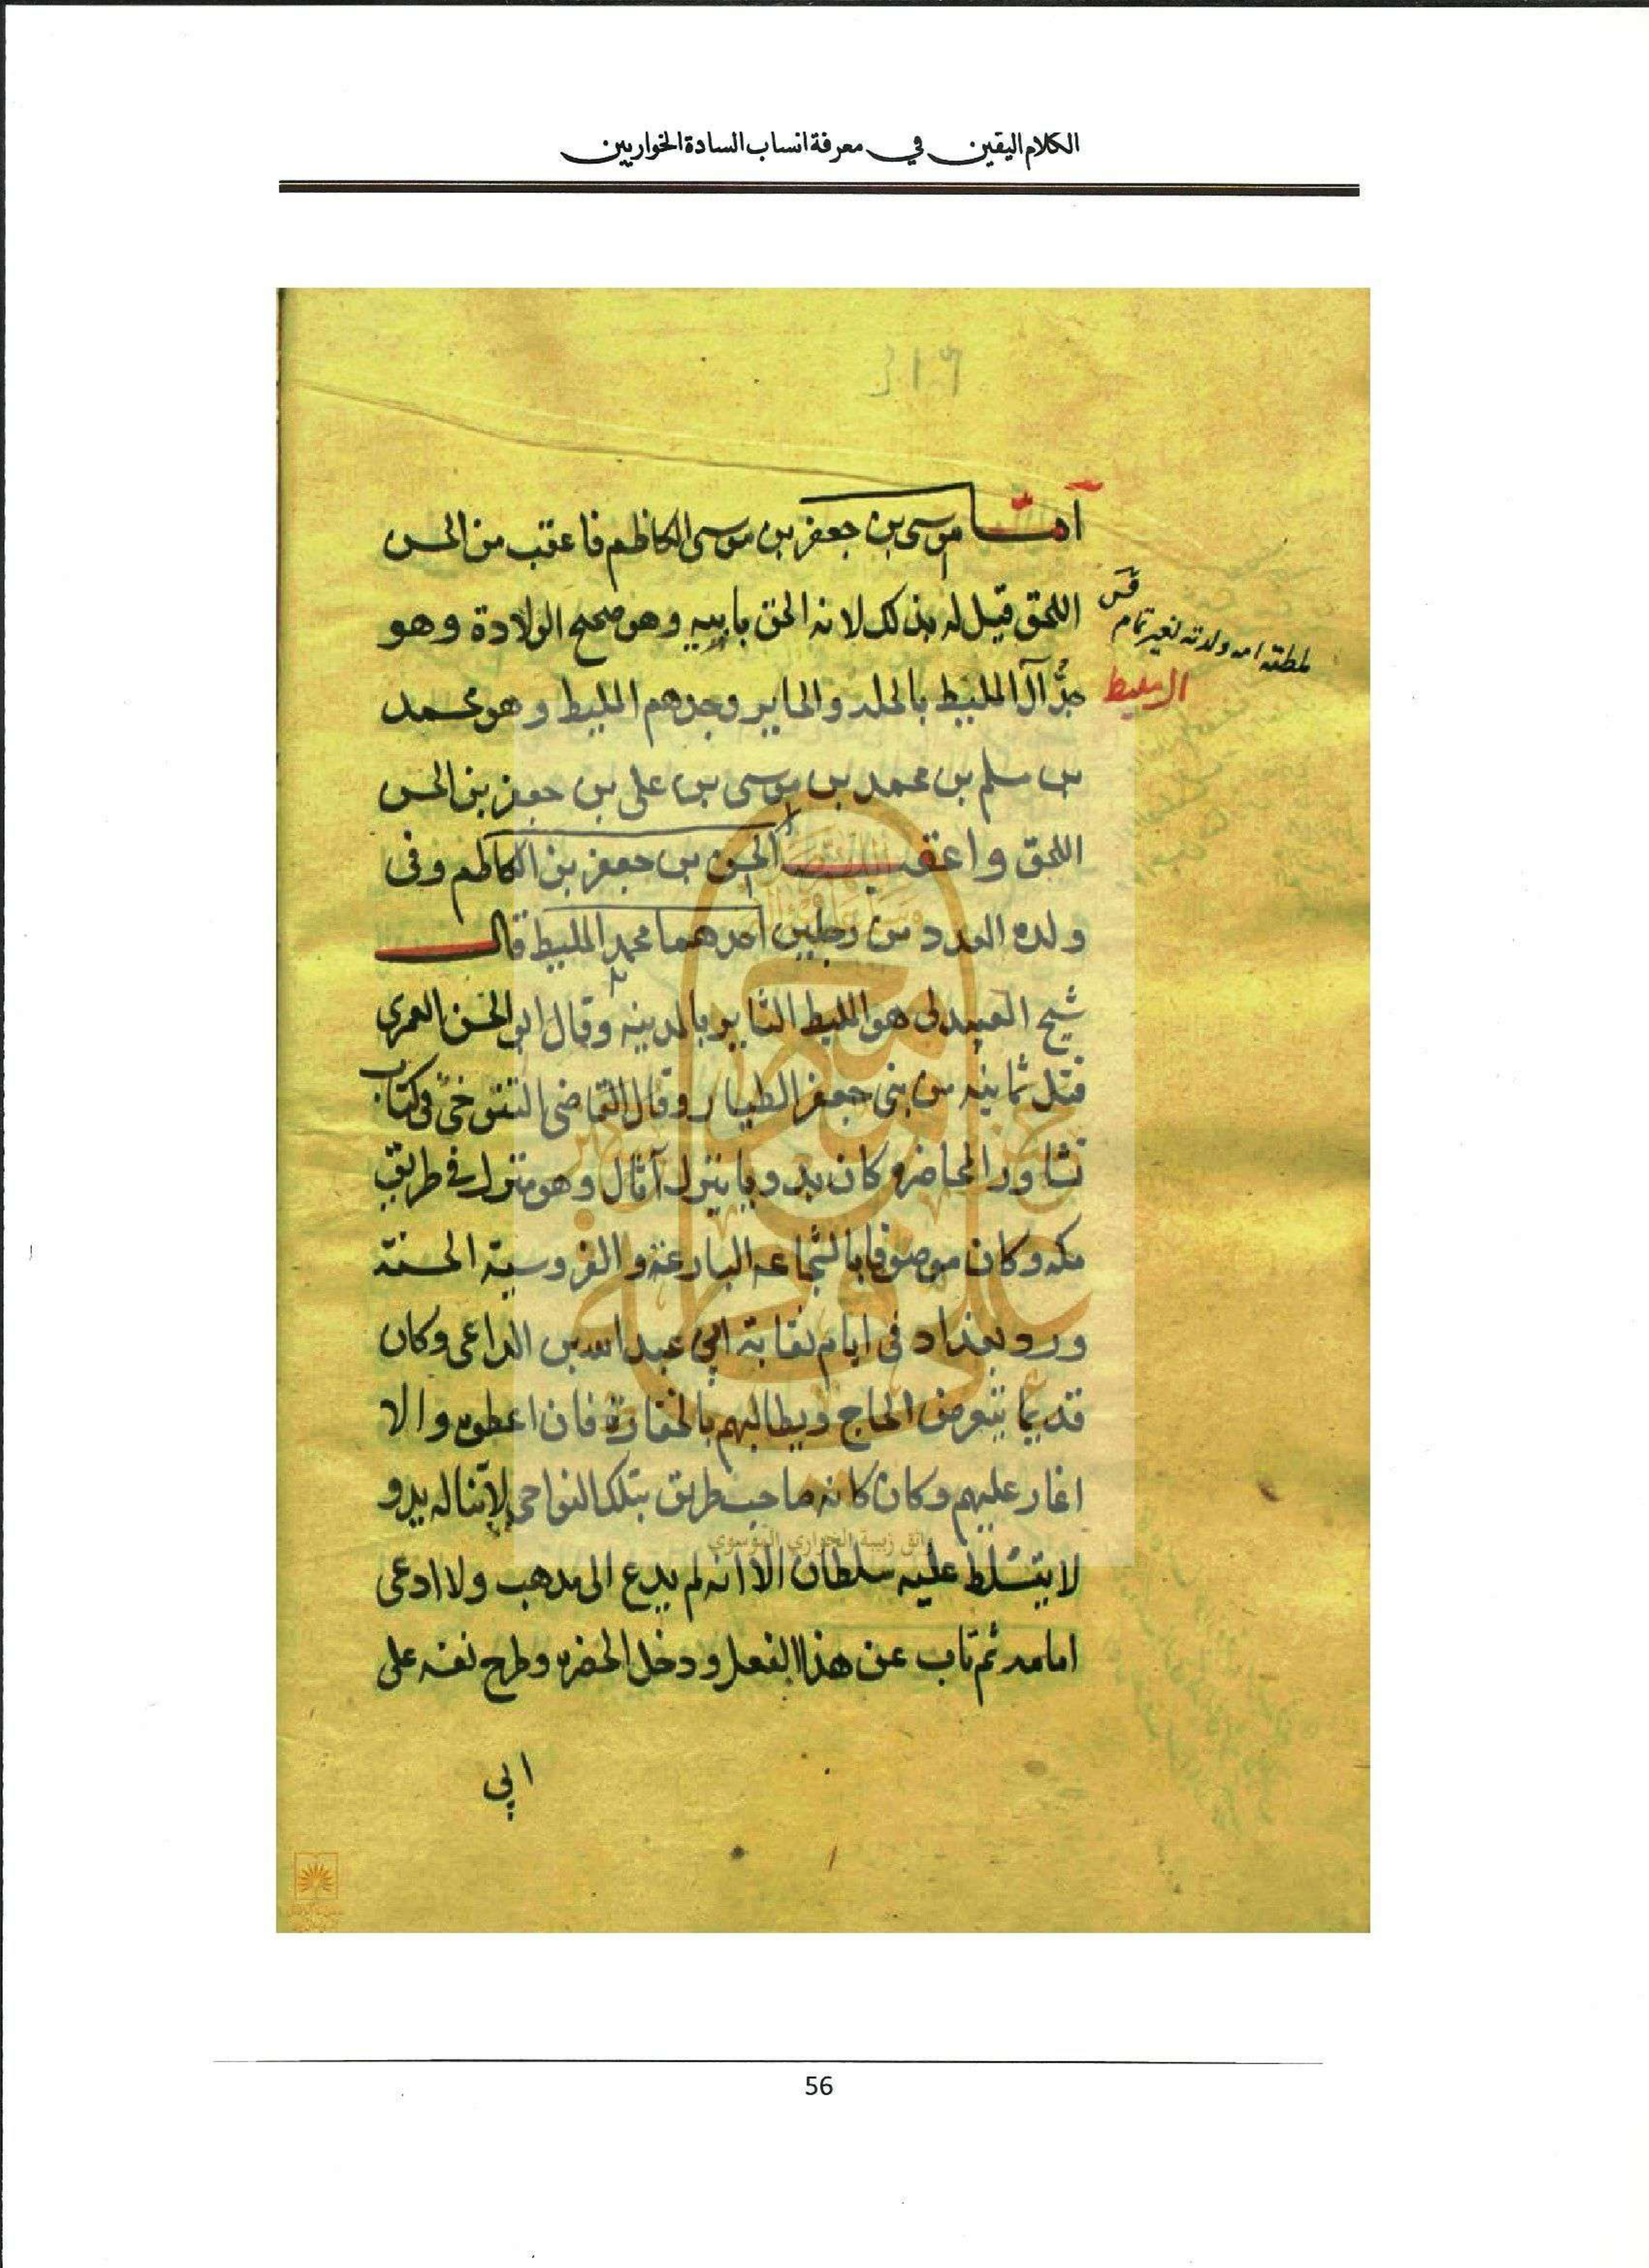 الكلام اليقين في معرفة انساب السادة الخواريين
اما موسى بن جعفر بن موسى الكاظم فاعقب من الحسن
اللحق قيل له بذلك لانه الحق بابيه وهو صحيح الولادة وهو
جد آل المليط بالحله والحاير وجدهم المليط وهو محمد
بن مسلم بن محمد بن موسى بن على بن جعفر بن الحسن
اللحق واعقب الحسن بن جعفر بن الكاظم وفى
ولده العدد من رجلين احدهما محمد المليط قال
شيخ العبيدلى هو المليط الثاير بالمدينه وقال ابو الحسن العمرى
قتل ثمانيه من بنى جعفر الطيار وقال القاضى التنوخى فى كتاب
نشاور المحاضره كان بدويا ينزل آثال وهو منزل فى طريق
مكه وكان موصوفا بالشجاعه البارعة والفروسية الحسنة
ورد بغداد فى ايام نقابة ابي عبد الله بن الداعى وكان
قديما يتعرض الحاج ويطالبهم بالخفارة فان اعطوه والا
اغار عليهم وكان كانه صاحب طريق بتلك النواحى لا تناله يد و
لا يتسلط عليه سلطان الا انه لم يدع الى مذهب ولا ادعى
امامه ثم تاب عن هذا الفعل ودخل الحضره وطرح نفسه على
ابي
ملطته امه ولدته لغير تمام
المليط
واثق زبيبة الخواري الموسوي
56